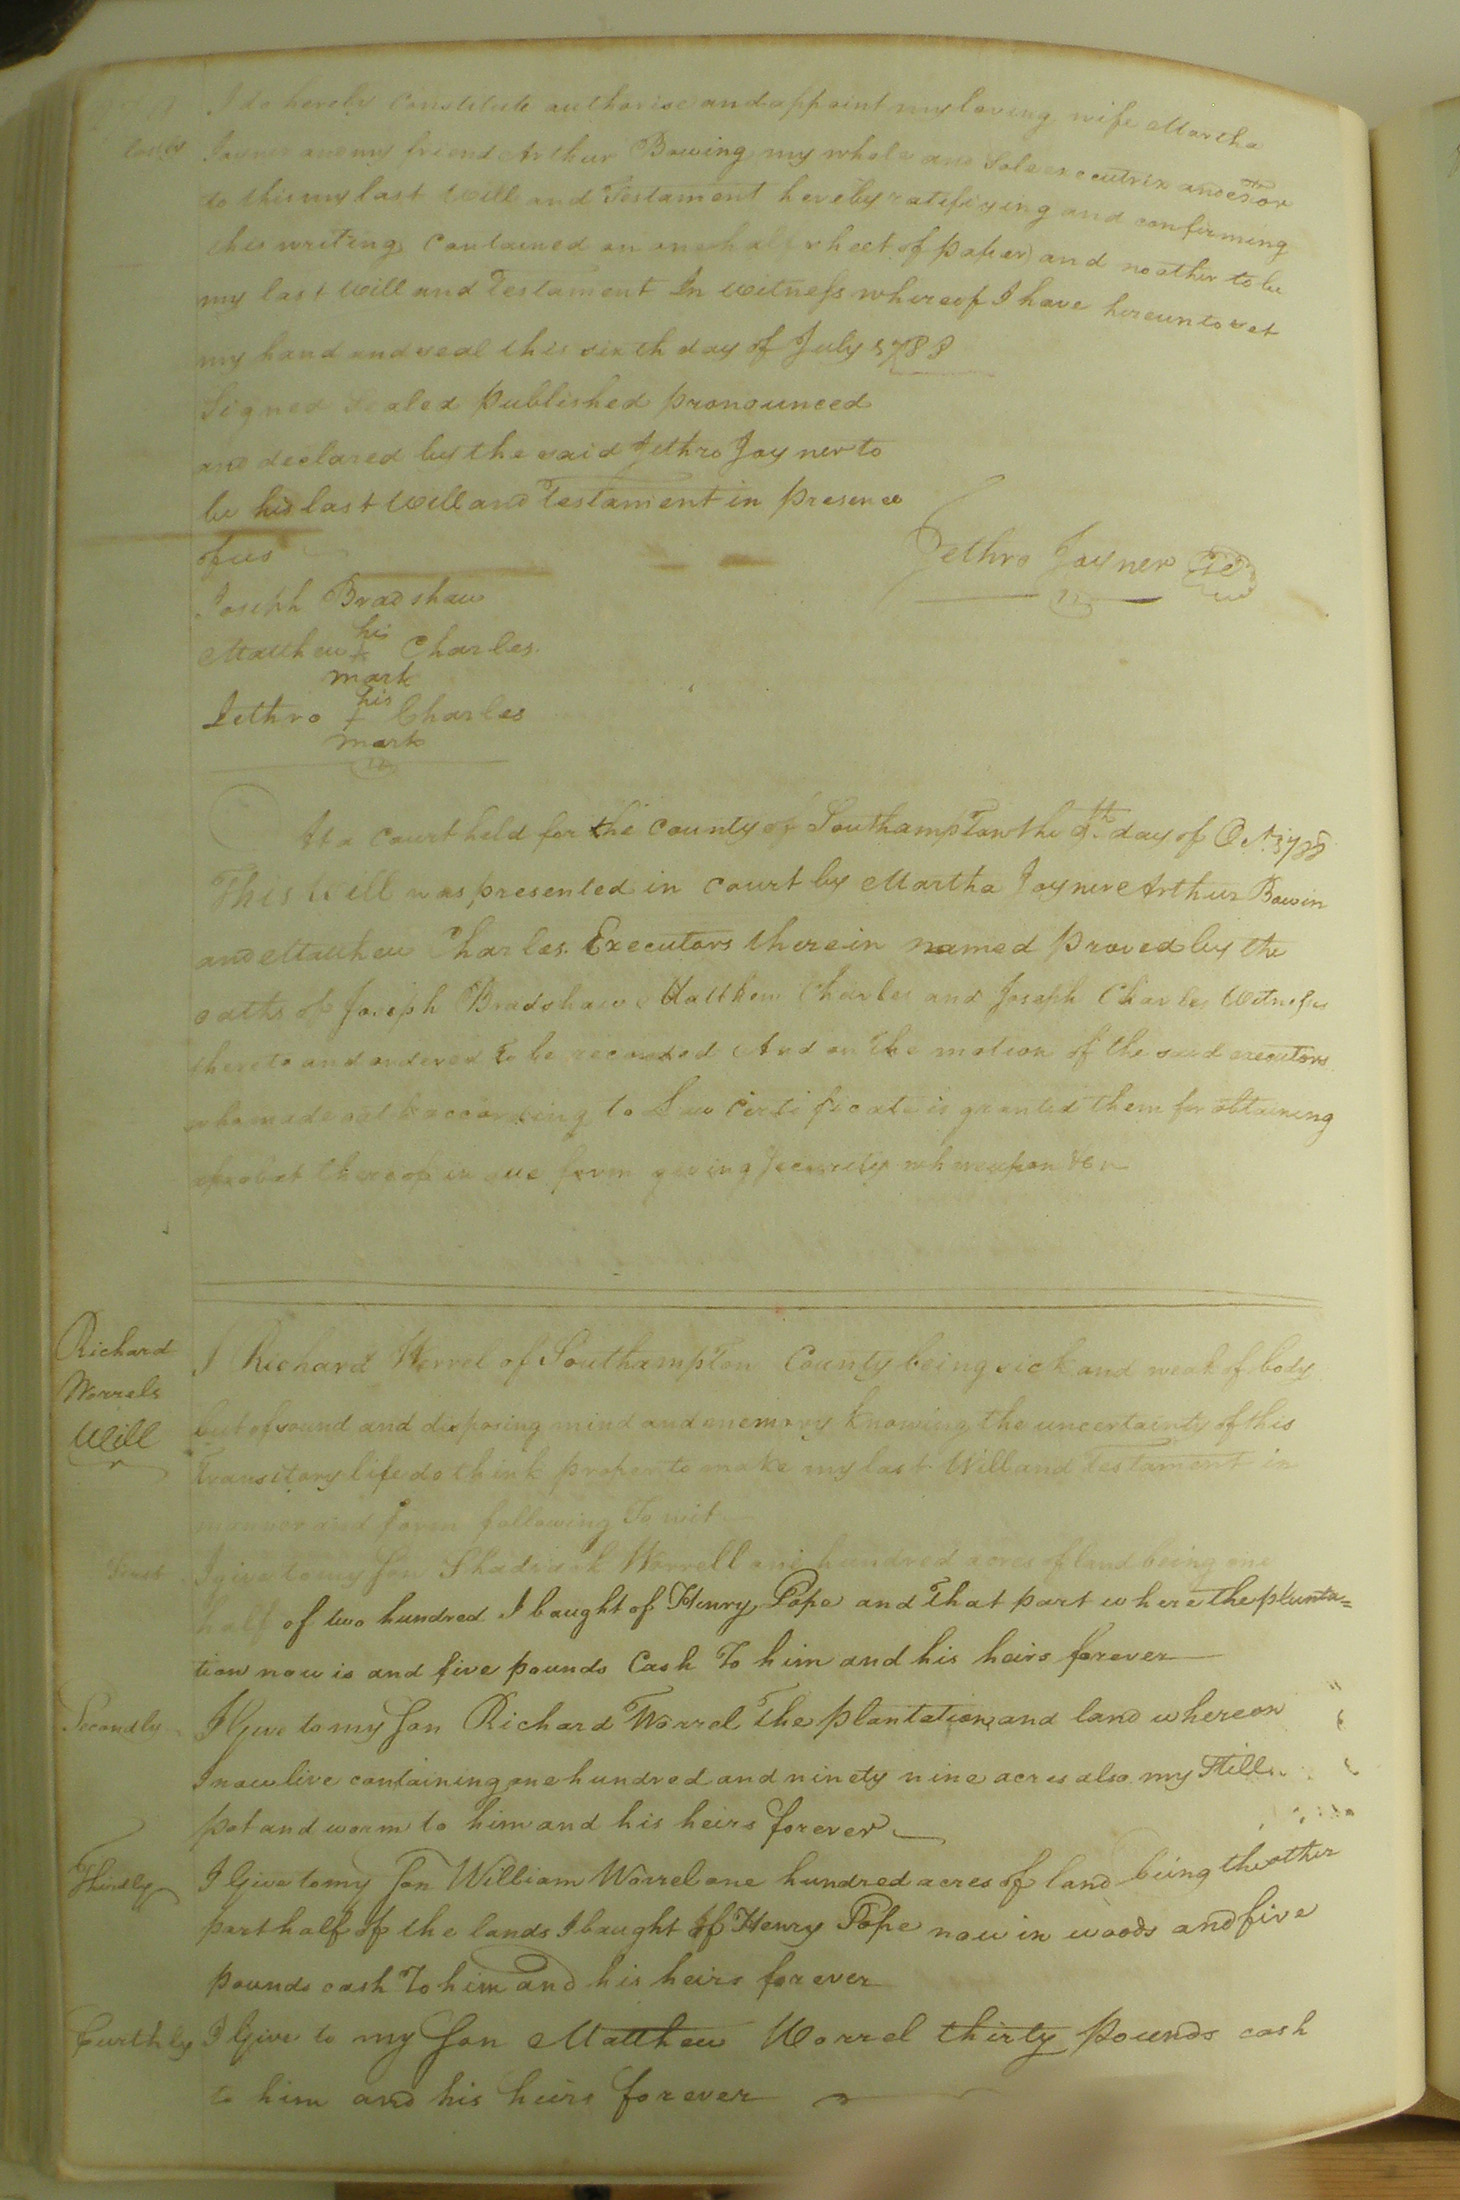 I do hereby Constitute authorise and appoint my loving wife Martha
Joyner and my friend Arthur Bowing my whole and Sole executrix and extor
to this my last Will and Testament hereby ratifying and confirming
this writing Contained on one half sheet of paper and no other to be
my last Will and Testament In Witness whereof I have hereunto set
my hand and seal this sixth day of July 1788
Signed Sealed Published pronounced
and declared by the said Jethro Joyner to
be his last Will and Testament in presence
of us
Jethro Joyner
Joseph Bradshaw
Matthew his x mark Charles
Jethro his + mark Charles
At a Court held for the County of Southampton the 9th day of Oct. 1788
This Will was presented in Court by Martha Joyner Arthur Bowin
and Matthew Charles. Executors therein named proved by the
oaths of Joseph Bradshaw Matthew Charles and Joseph Charles Witnesses
thereto and ordered to be recorded And on the motion of the said executors
who made oath according to Law Certificate is granted them for obtaining
probat thereof in due form giving Security whereupon
Richard
Worrels
Will
I Richard Worrel of Southampton County being sick and weak of body
but of sound and disposing mind and memory knowing the uncertainty of this
Transitory life do think proper to make my last Will and Testament in
manner and form following To wit
First I give to my Son Shadrack Worrell one hundred acres of land being one
half of two hundred I baught of Henry Pope and that part where the planta=
tion now is and five pounds Cash To him and his heirs forever
Secondly I Give to my Son Richard Worrel The plantation and land whereon
I now live containing one hundred and ninety nine acres also my Still
pot and worm to him and his heirs forever
Thirdly I Give to my Son William Worrel one hundred acres of land being the other
part half of the lands I baught of Henry Pope now in woods and five
pounds cash To him and his heirs forever
Furthly I Give to my Son Matthew Worrel thirty pounds cash
to him and his heirs forever